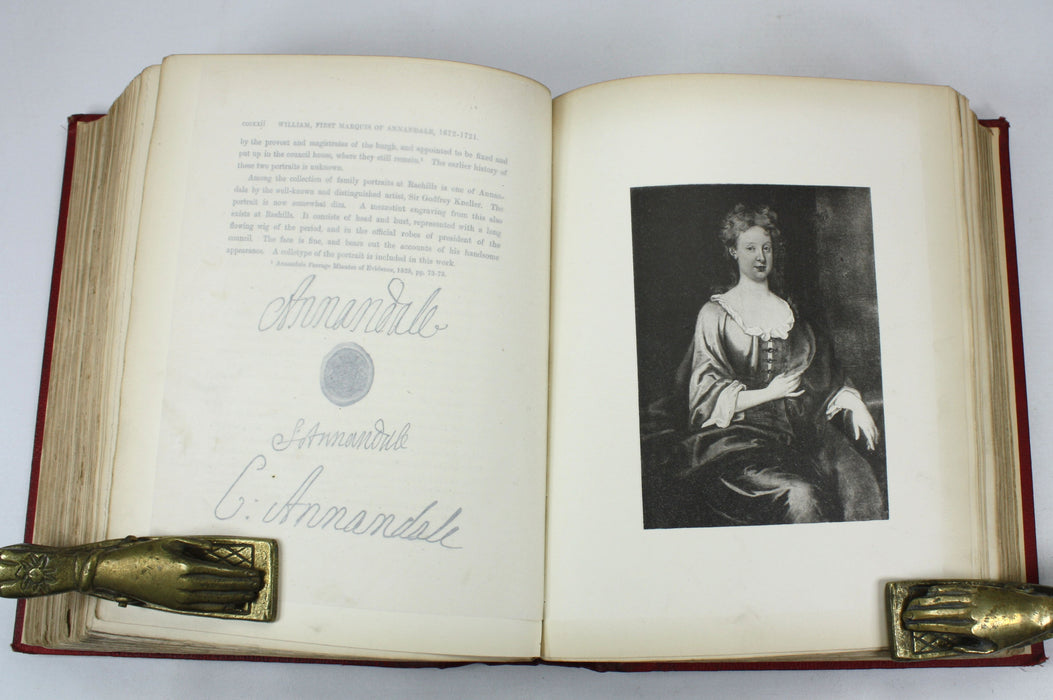 cccxxii WILLIAM, FIRST MARQUIS OF ANNANDALE, 1672-1721.
by the provost and magistrates of the burgh, and appointed to be fixed and
put up in the council house, where they still remain.¹ The earlier history of
these two portraits is unknown.
Among the collection of family portraits at Raehills is one of Annan-
dale by the well-known and distinguished artist, Sir Godfrey Kneller. The
portrait is now somewhat dim. A mezzotint engraving from this also
exists at Raehills. It consists of head and bust, represented with a long
flowing wig of the period, and in the official robes of president of the
council. The face is fine, and bears out the accounts of his handsome
appearance. A collotype of the portrait is included in this work.
¹ Annandale Peerage Minutes of Evidence, pp.
Annandale
SAnnandale
C: Annandale